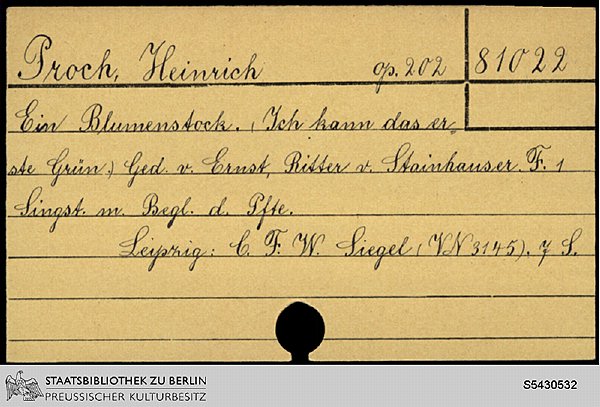 Proch, Heinrich op. 202 81022
Ein Blumenstock. (Ich kann das er-
ste Grün.) Ged. v. Ernst, Ritter v. Stainhauser. F. 1
Singst. m. Begl. d. Pfte.
Leipzig: C. F. W. Siegel (VN 3145). 7 S.
STAATSBIBLIOTHEK ZU BERLIN
PREUSSISCHER KULTURBESITZ
S5430532